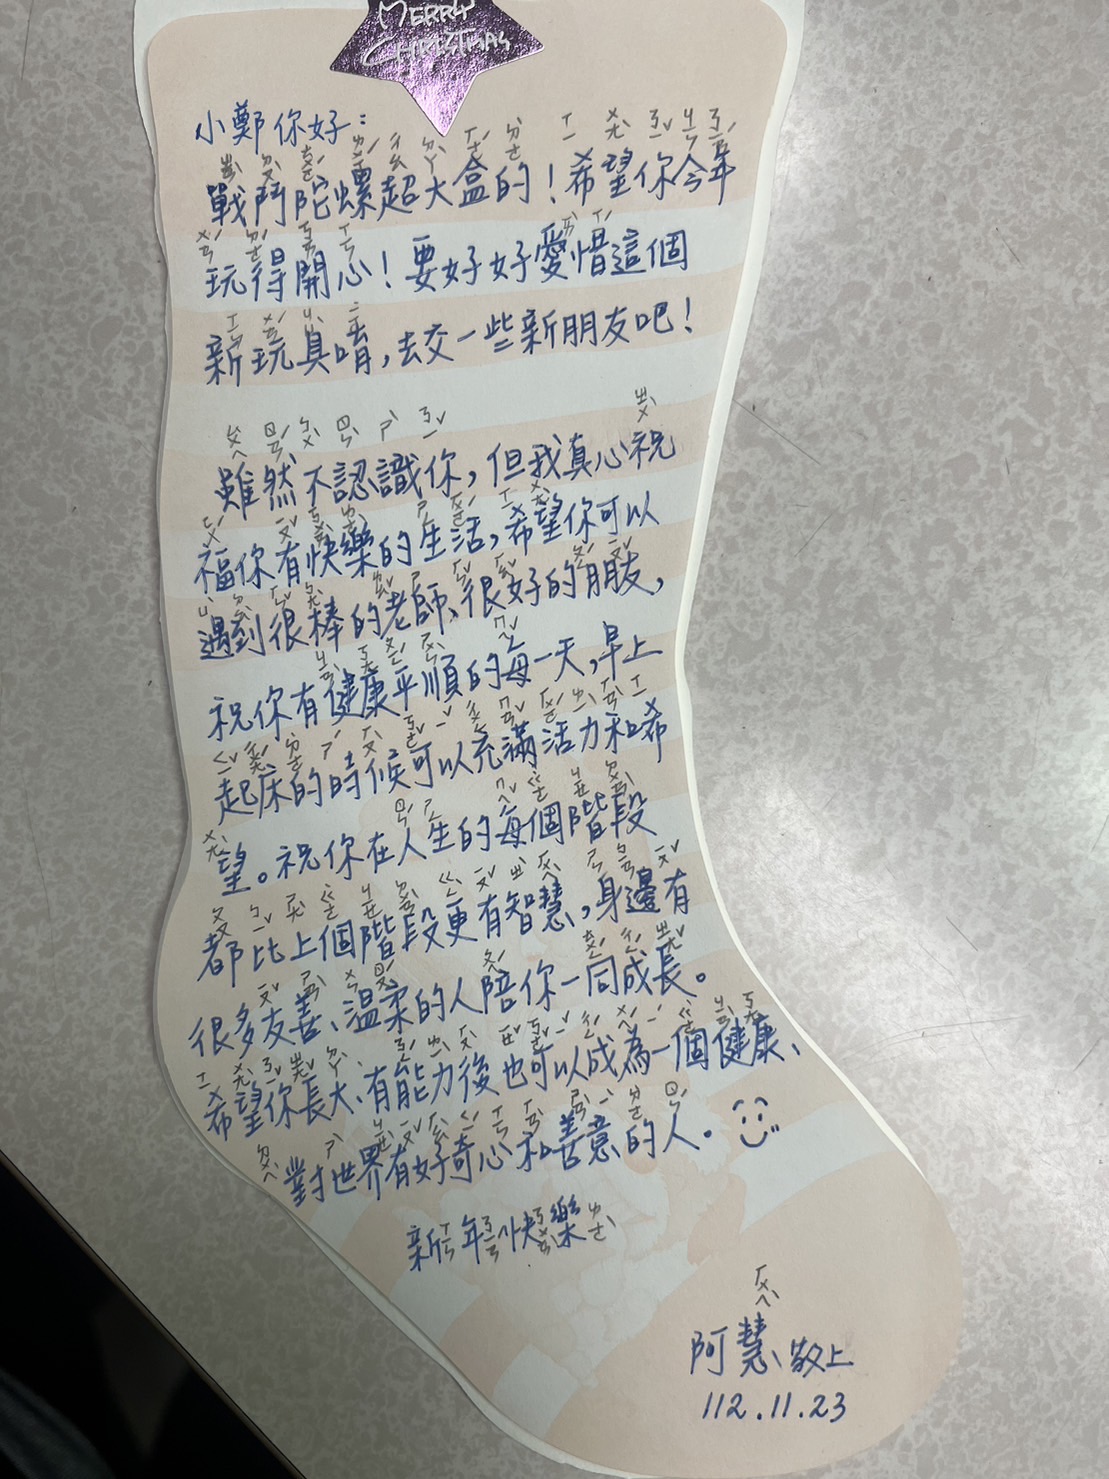 MERRY
CHRISTMAS
小鄭你好：
戰鬥陀螺超大盒的！希望你今年
玩得開心！要好好愛惜這個
新玩具唷，去交一些新朋友吧！
雖然不認識你，但我真心祝
福你有快樂的生活，希望你可以
遇到很棒的老師、很好的朋友，
祝你有健康平順的每一天，早上
起床的時候可以充滿活力和希
望。祝你在人生的每個階段
都比上個階段更有智慧，身邊有
很多友善、溫柔的人陪你一同成長。
希望你長大、有能力後也可以成為一個健康、
對世界有好奇心和善意的人。
新年快樂
阿慧、敬上
112.11.23